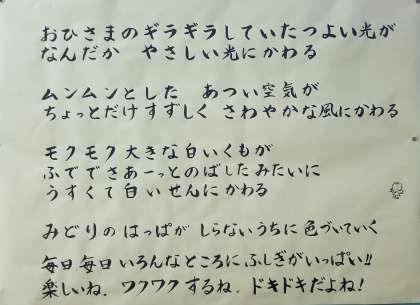 おひさまのギラギラしていたつよい光が
なんだか　やさしい光にかわる
ムンムンとした　あつい空気が
ちょっとだけすずしく　さわやかな風にかわる
モクモク大きな白いくもが
ふででさあーっとのばしたみたいに
うすくて白いせんにかわる
みどりのはっぱが　しらないうちに色づいていく
毎日毎日いろんなところにふしぎがいっぱい!!
楽しいね。ワクワクするね。ドキドキだよね!